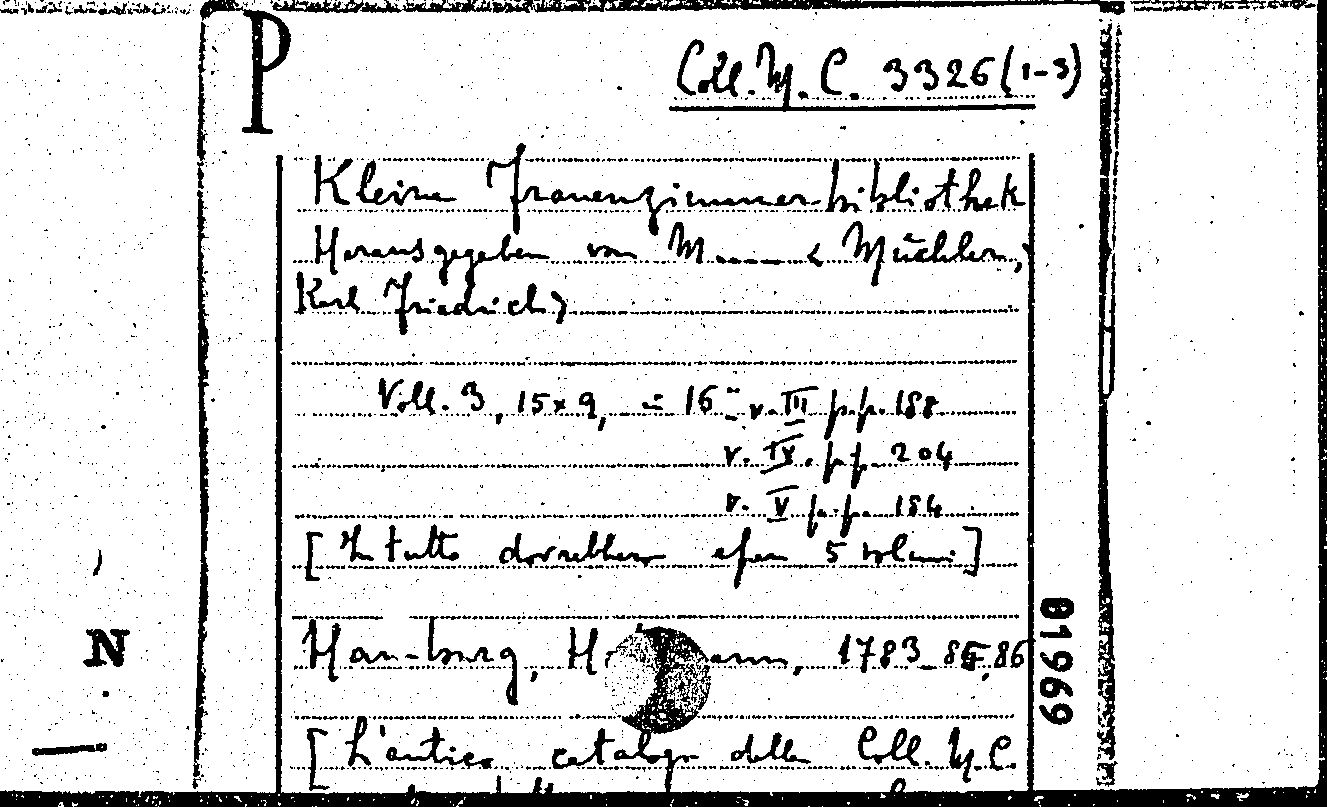 P
Coll. M. C. 3326 (1-3)
Kleine Frauenzimmerbibliothek
Herausgegeben von M..... < Müchlern,
Karl Friedrich>
Voll. 3, 15x9, in 16° v. III pp. 188
v. IV. pp. 204
v. V pp. 184
[In tutto dovrebbero essere 5 volumi]
N
Hamburg, 1783-85, 86
01969
[L'antico catalogo della Coll. M.C.